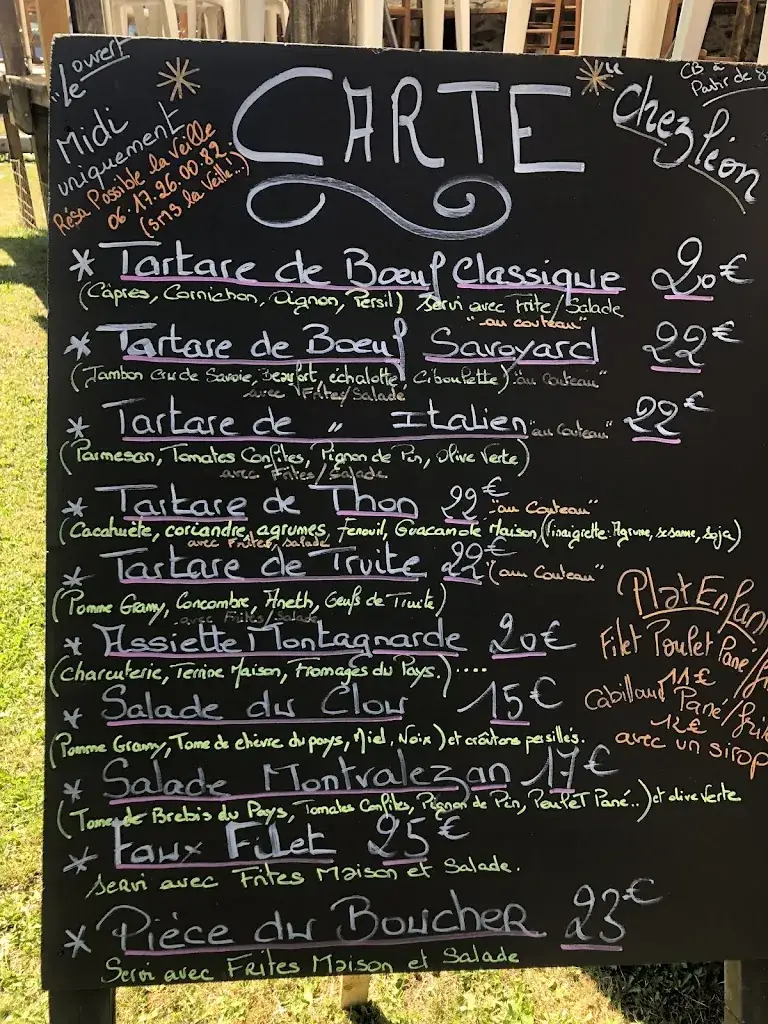 "Le ouvert
Midi
uniquement
Résa Possible la Veille
06.17.26.00.82.
(sms la veille...)
CARTE
CB à
Partir de
chez léon
* Tartare de Bœuf Classique 20€
(Câpres, Cornichon, Oignon, Persil) Servi avec Frite/Salade
"au couteau"
* Tartare de Bœuf Savoyard 22€
(Jambon Cru de Savoie, Beaufort, échalotte, Ciboulette) "au Couteau"
avec Frites/Salade
* Tartare de " Italien "au Couteau" 22€
(Parmesan, Tomates Confites, Pignon de Pin, Olive Verte)
avec Frites/Salade
* Tartare de Thon 22€ "au Couteau"
(Cacahuète, coriandre, agrumes, fenouil, Guacamole Maison, (Vinaigrette: Agrume, sesame, Soja)
avec Frites, salade
* Tartare de Truite 22€ "(au Couteau"
(Pomme Granny, Concombre, Aneth, Œufs de Truite)
avec Frites/Salade
* Assiette Montagnarde 20€
(Charcuterie, Terrine Maison, Fromages du Pays.)....
* Salade du Clou 15€
(Pomme Granny, Tome de chèvre du pays, Miel, Noix) et croûtons persillés.
* Salade Montvalezan 17€
(Tome de Brebis du Pays, Tomates Confites, Pignon de Pin, Poulet Pané..) et olive Verte
* Faux Filet 25€
Servi avec Frites Maison et Salade.
* Pièce du Boucher 23€
Servi avec Frites Maison et Salade
Plat Enfan
Filet Poulet Pané/
11€
Cabillaud Pané/fri
12€
avec un sirop